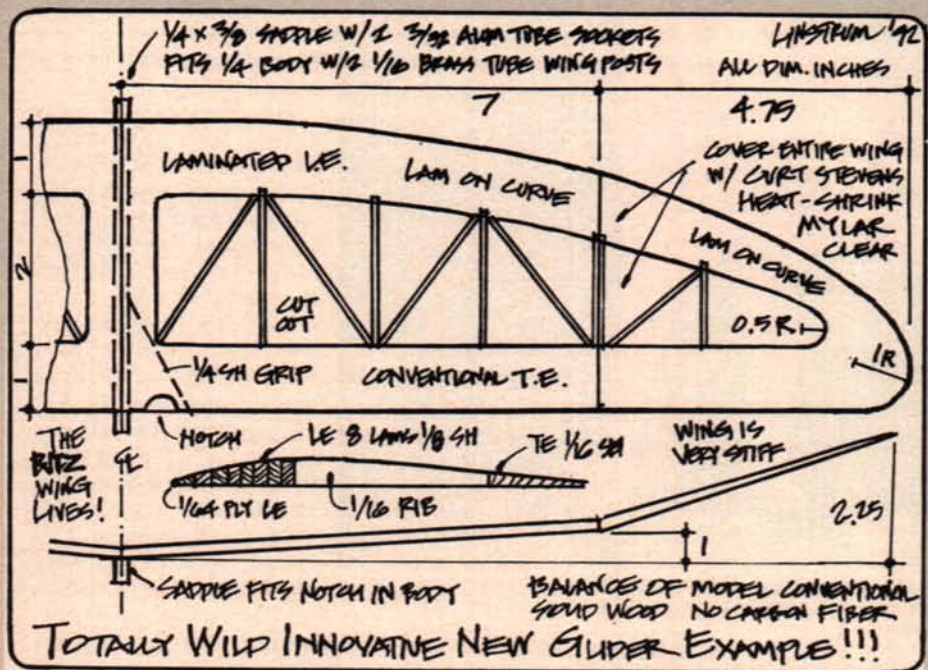 1/4 X 3/8 SADDLE W/2 3/32 ALUM TUBE SOCKETS
FITS 1/4 BODY W/2 1/16 BRASS TUBE WING POSTS
LINSTRUM '92
ALL DIM. INCHES
7
4.75
LAMINATED L.E.
LAM ON CURVE
COVER ENTIRE WING
W/ CURT STEVENS
HEAT-SHRINK
MYLAR
CLEAR
LAM ON CURVE
1
2
1
CUT
OUT
0.5 R.
1R
1/4 SH GRIP
CONVENTIONAL T.E.
NOTCH
LE 8 LAMS 1/8 SH
TE 1/16 SH
WING IS
VERY STIFF
THE
BITZ
WING
LIVES!
℄
1/64 PLY LE
1/16 RIB
2.25
1
SADDLE FITS NOTCH IN BODY
BALANCE OF MODEL CONVENTIONAL
SOLID WOOD NO CARBON FIBER
TOTALLY WILD INNOVATIVE NEW GLIDER EXAMPLE!!!